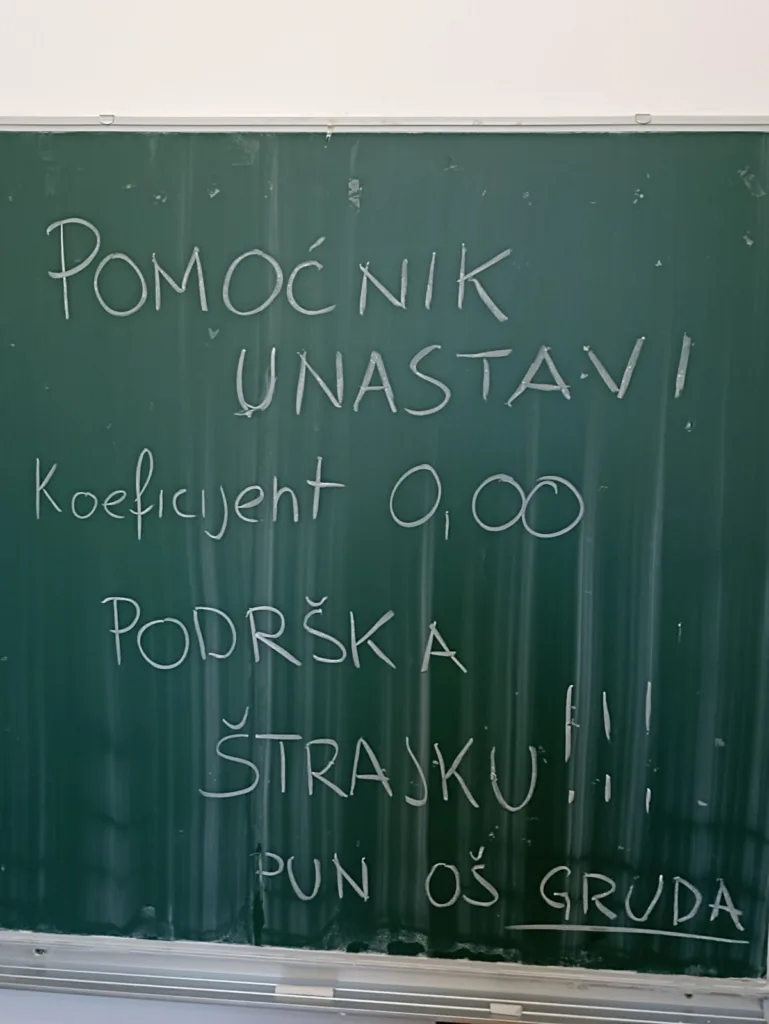 POMOĆNIK
UNASTAVI
Koeficijent 0,00
PODRŠKA
ŠTRAJKU!!!
PUN OŠ GRUDA